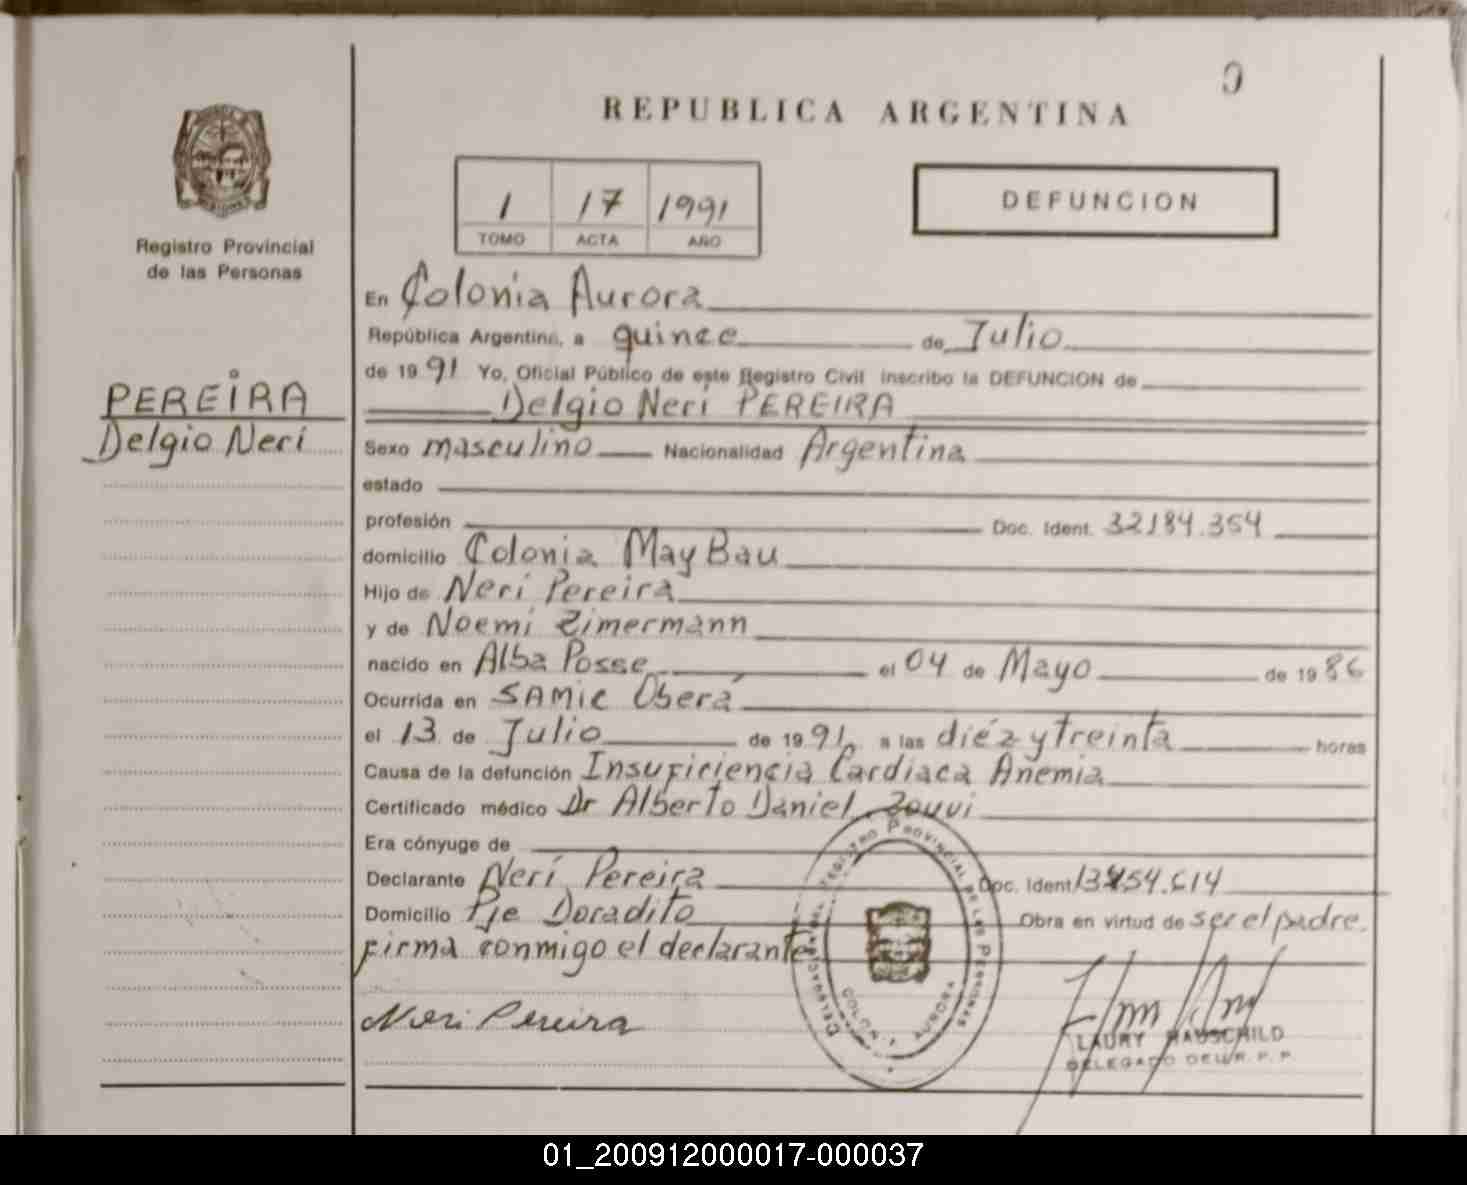 REPUBLICA ARGENTINA
1 17 1991
TOMO ACTA AÑO
DEFUNCION
Registro Provincial
de las Personas
PEREIRA
Delgio Neri
En Colonia Aurora
República Argentina, a quince de Julio
de 1991 Yo, Oficial Público de este Registro Civil inscribo la DEFUNCION de
Delgio Neri PEREIRA
Sexo masculino Nacionalidad Argentina
estado
profesión Doc. Ident. 32184.354
domicilio Colonia May Bau
Hijo de Neri Pereira
y de Noemi Zimermann
nacido en Alba Posse el 04 de Mayo de 1986
Ocurrida en SAMIC Oberá
el 13 de Julio de 1991, a las diéz y treinta horas
Causa de la defunción Insuficiencia Cardiaca Anemia
Certificado médico Dr Alberto Daniel
Era cónyuge de
Declarante Neri Pereira Doc. Ident
Domicilio Pje Doradito Obra en virtud de ser el padre.
firma conmigo el declarante
Neri Pereira
REGISTRO PROVINCIAL DE LAS PERSONAS
COLONIA AURORA
LAURY HAUSCHILD
DELEGADO DEL R. P. P.
01_200912000017-000037